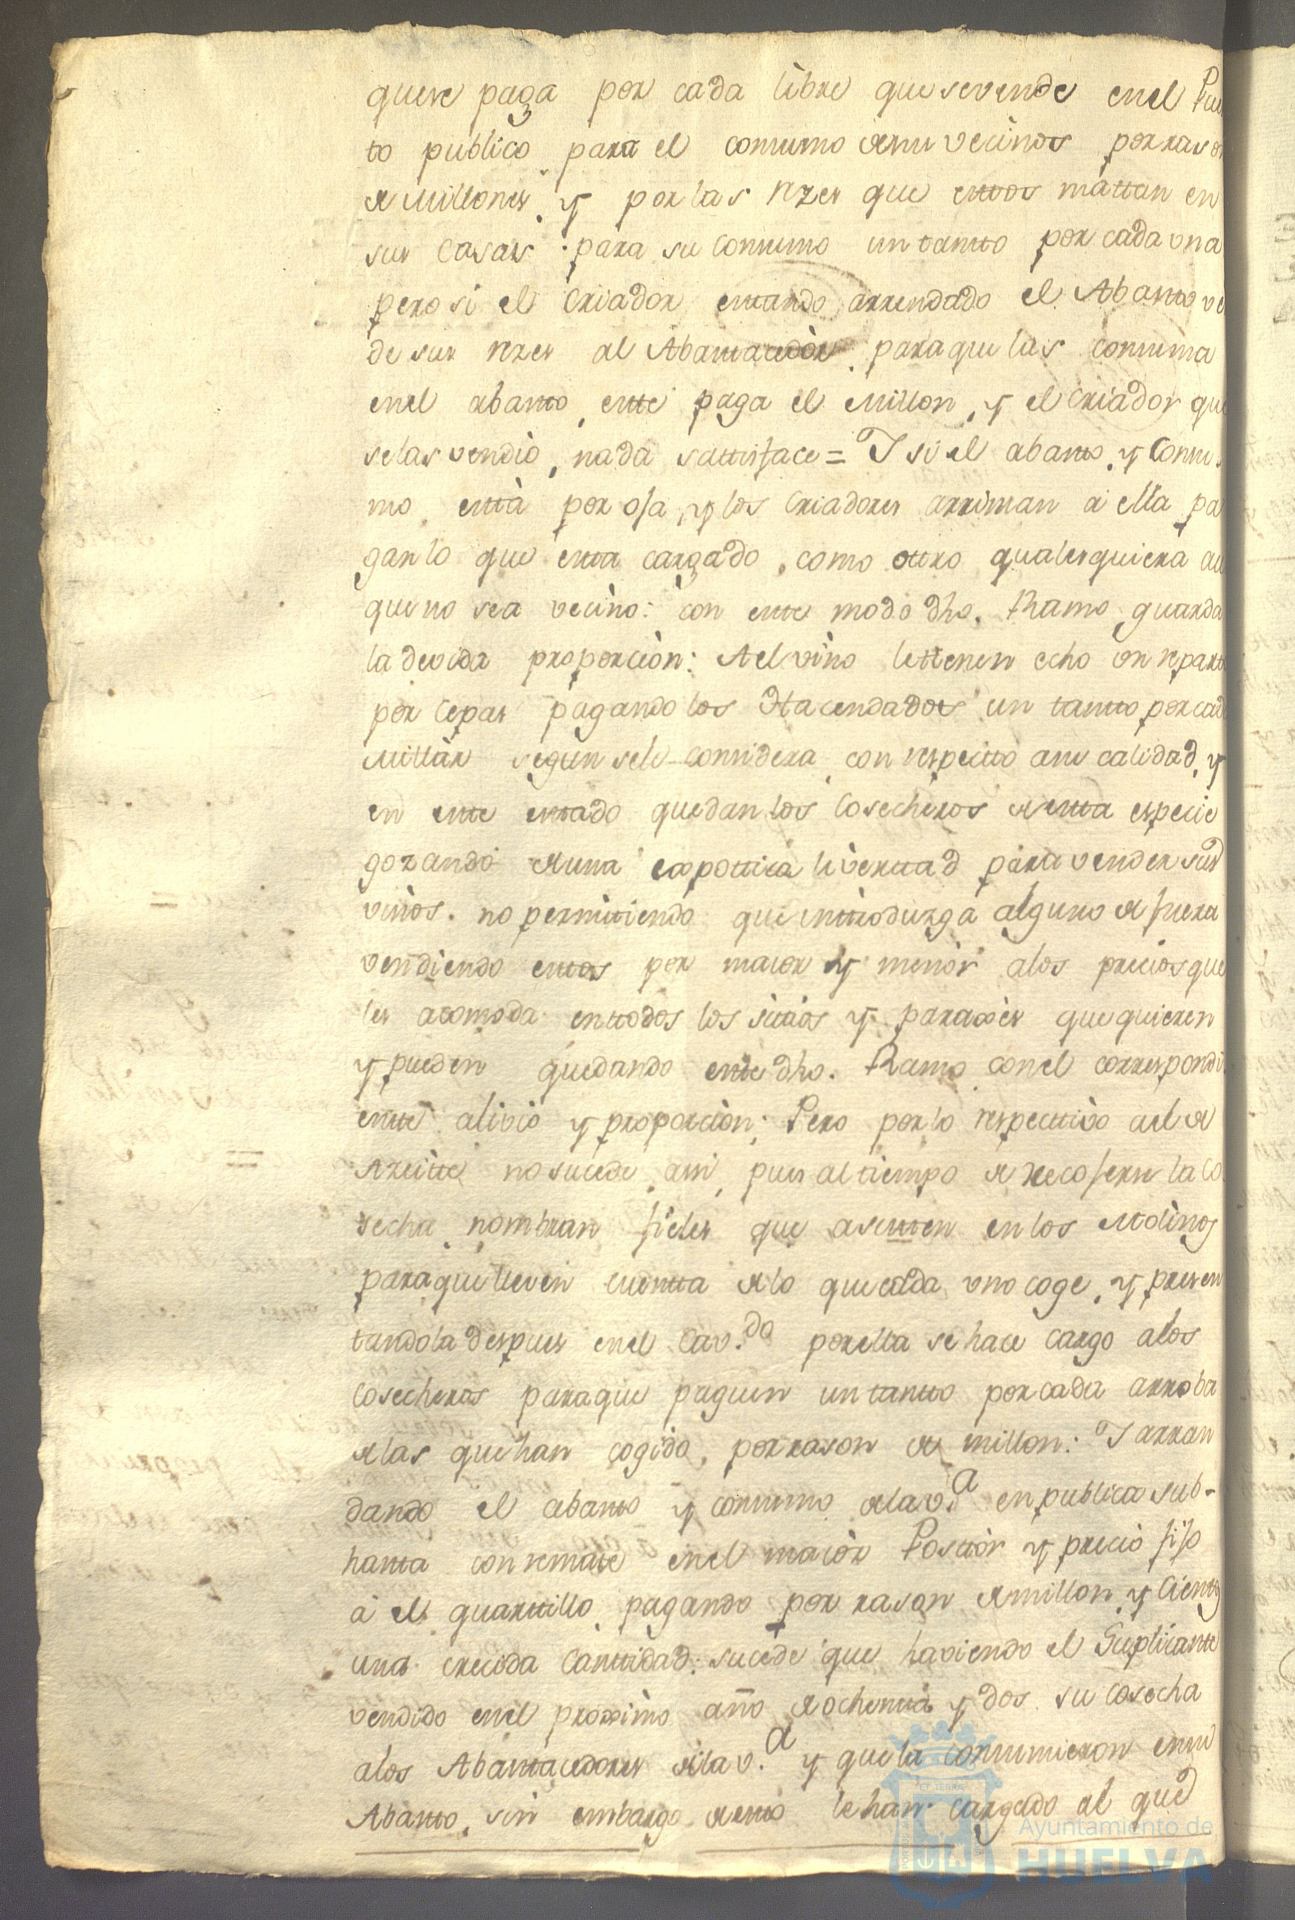 que se paga por cada libre que se vende en el Pues
to publico para el consumo de sus vecinos por rason
de Millones, y por las rezes que estos mattan en
sus casas para su consumo un tantto por cada una
pero si el Criador estando arrendado el Abasto ve
de sus rezes al Abastecedor para que las consuma
en el abasto, este paga el Millon, y el Criador que
se las vendiò, nada sattisface = I si el abasto, y Consu-
mo està por oja, y los Criadores arriman à ella pa
gan lo que esta cargado, como ottro qualesquiera au
que no sea vecino: con este modo dho. Ramo guarda
la devida proporciòn: A el vino le ttienen echo un repart
por Cepas pagando los Hacendados un tantto por cad
Millàr segun se le considera con respectto a su calidad, y
en este estado quedan los Cosecheros de esta especie
gozando de una livertad para vender sus
vinos. no permitiendo que inttrodurga alguno de fuera
vendiendo estos por maior y menòr a los precios que
les acomoda en ttodos los sitios y paraxes que quieren
y pueden quedando este dho. Ramo con el correspondi
ente alivio y proporciòn: Pero por lo respectivo a el de
Azeitte no sucede assi, pues al tiempo de recojerse la Co
secha nombran fieles que asisten en los Molinos
para que lleven cuentta de lo que cada uno coge, y presen
tandola despues en el Cav.do por ella se hace cargo a los
Cosecheros para que paguen un tantto por cada arroba
de las que han cogido, por rason de millon: I arran
dando el abasto y consumo de la v.a en publica sub-
hasta con remate en el maiòr Posttòr y precio fijo
à el quarttillo pagando por rason de millon, y Cientos
una crecida Canttidad: sucede que haviendo el Suplicante
vendido en el proximo año de ochenta y dos su cosecha
a los Abastecedores de la v.a y que la consumieron en su
Abasto, sin embargo de esto le han cargado al que
Ayuntamiento de
HUELVA